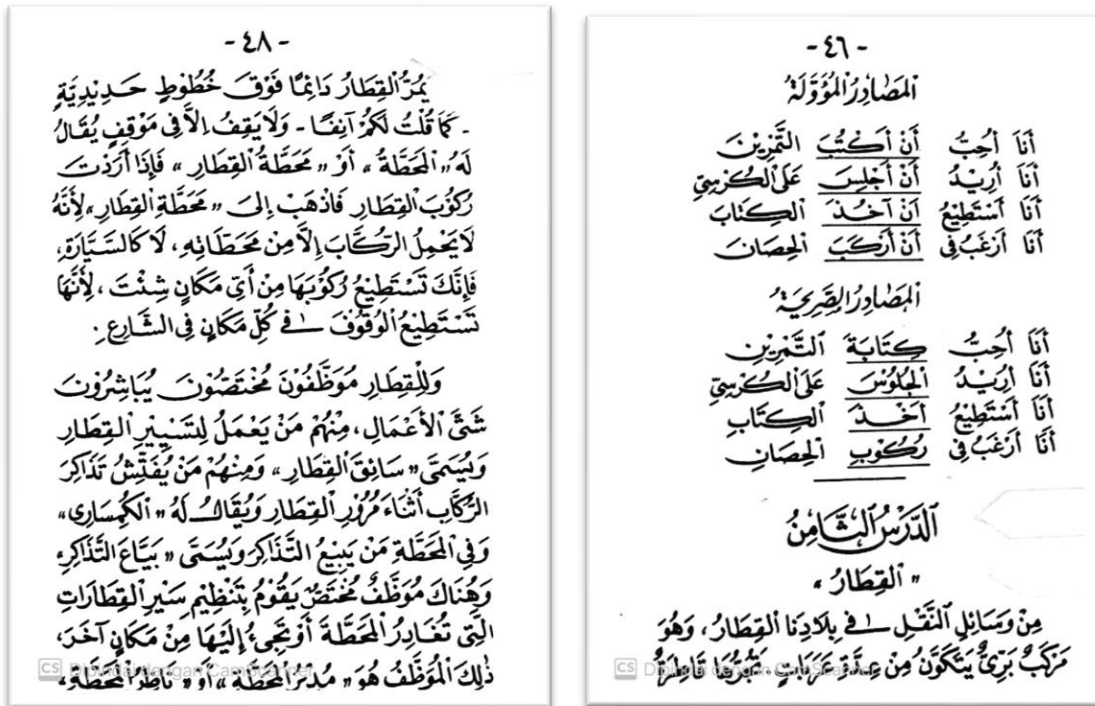 - ٤٦ -
اَلْمَصَادِرُ الْمُؤَوَّلَةُ
أَنَا أُحِبُّ أَنْ أَكْتُبَ التَّمْرِيْنَ
أَنَا أُرِيْدُ أَنْ أَجْلِسَ عَلَى الْكُرْسِيِّ
أَنَا أَسْتَطِيْعُ أَنْ آخُذَ الْكِتَابَ
أَنَا أَرْغَبُ فِى أَنْ أَرْكَبَ الْحِصَانَ
اَلْمَصَادِرُ الصَّرِيْحَةُ
أَنَا أُحِبُّ كِتَابَةَ التَّمْرِيْنِ
أَنَا أُرِيْدُ الْجُلُوْسَ عَلَى الْكُرْسِيِّ
أَنَا أَسْتَطِيْعُ أَخْذَ الْكِتَابِ
أَنَا أَرْغَبُ فِى رُكُوْبِ الْحِصَانِ
اَلدَّرْسُ الثَّامِنُ
« اَلْقِطَارُ »
مِنْ وَسَائِلِ النَّقْلِ فِي بِلَادِنَا الْقِطَارُ ، وَهُوَ
مَرْكَبٌ بَرِّيٌّ يَتَكَوَّنُ مِنْ عِدَّةِ عَرَبَاتٍ
CS Dipindai dengan CamScanner
- ٤٨ -
يَمُرُّ الْقِطَارُ دَائِمًا فَوْقَ خُطُوْطٍ حَدِيْدِيَّةٍ
- كَمَا قُلْتُ لَكُمْ آنِفًا - وَلَا يَقِفُ إِلَّا فِى مَوْقِفٍ يُقَالُ
لَهُ « الْمَحَطَّةُ » أَوْ « مَحَطَّةُ الْقِطَارِ » فَإِذَا أَرَدْتَ
رُكُوْبَ الْقِطَارِ فَاذْهَبْ إِلَى « مَحَطَّةِ الْقِطَارِ » لِأَنَّهُ
لَا يَحْمِلُ الرُّكَّابَ إِلَّا مِنْ مَحَطَّاتِهِ ، لَا كَالسَّيَّارَةِ ،
فَإِنَّكَ تَسْتَطِيْعُ رُكُوْبَهَا مِنْ أَيِّ مَكَانٍ شِئْتَ ، لِأَنَّهَا
تَسْتَطِيْعُ الْوُقُوْفَ فِي كُلِّ مَكَانٍ فِى الشَّارِعِ .
وَلِلْقِطَارِ مُوَظَّفُوْنَ مُخْتَصُّوْنَ يُبَاشِرُوْنَ
شَتَّى الْأَعْمَالِ ، مِنْهُمْ مَنْ يَعْمَلُ لِتَسْيِيْرِ الْقِطَارِ
وَيُسَمَّى « سَائِقَ الْقِطَارِ » وَمِنْهُمْ مَنْ يُفَتِّشُ تَذَاكِرَ
الرُّكَّابِ أَثْنَاءَ مُرُوْرِ الْقِطَارِ وَيُقَالُ لَهُ « الْكُمْسَارِى »
وَفِى الْمَحَطَّةِ مَنْ يَبِيْعُ التَّذَاكِرَ وَيُسَمَّى « بَيَّاعَ التَّذَاكِرِ »
وَهُنَاكَ مُوَظَّفٌ مُخْتَصٌّ يَقُوْمُ بِتَنْظِيْمِ سَيْرِ الْقِطَارَاتِ
الَّتِى تُغَادِرُ الْمَحَطَّةَ أَوْ تَجِىْءُ إِلَيْهَا مِنْ مَكَانٍ آخَرَ ،
ذٰلِكَ الْمُوَظَّفُ هُوَ « مُدِيْرُ الْمَحَطَّةِ » أَوْ « نَاظِرُ الْمَحَطَّةِ » ،
CS Dipindai dengan CamScanner